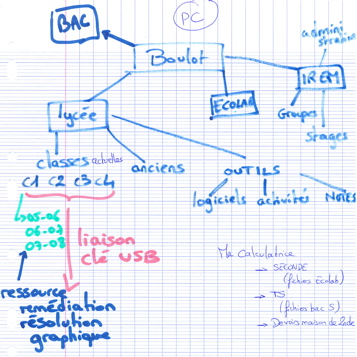 PC
BAC
Boulot
admini
stration
IREM
ECOLAB
Groupes
stages
lycée
classes actuelles
C1 C2 C3 C4
anciens
OUTILS
logiciels activités NOTES
05-06
06-07
07-08
liaison
clé USB
ressource
remédiation
résolution
graphique
Ma Calculatrice
→ SECONDE
(fichiers Ecolab)
→ TS
(fichiers bac S)
→ Devoirs maison de 2nde